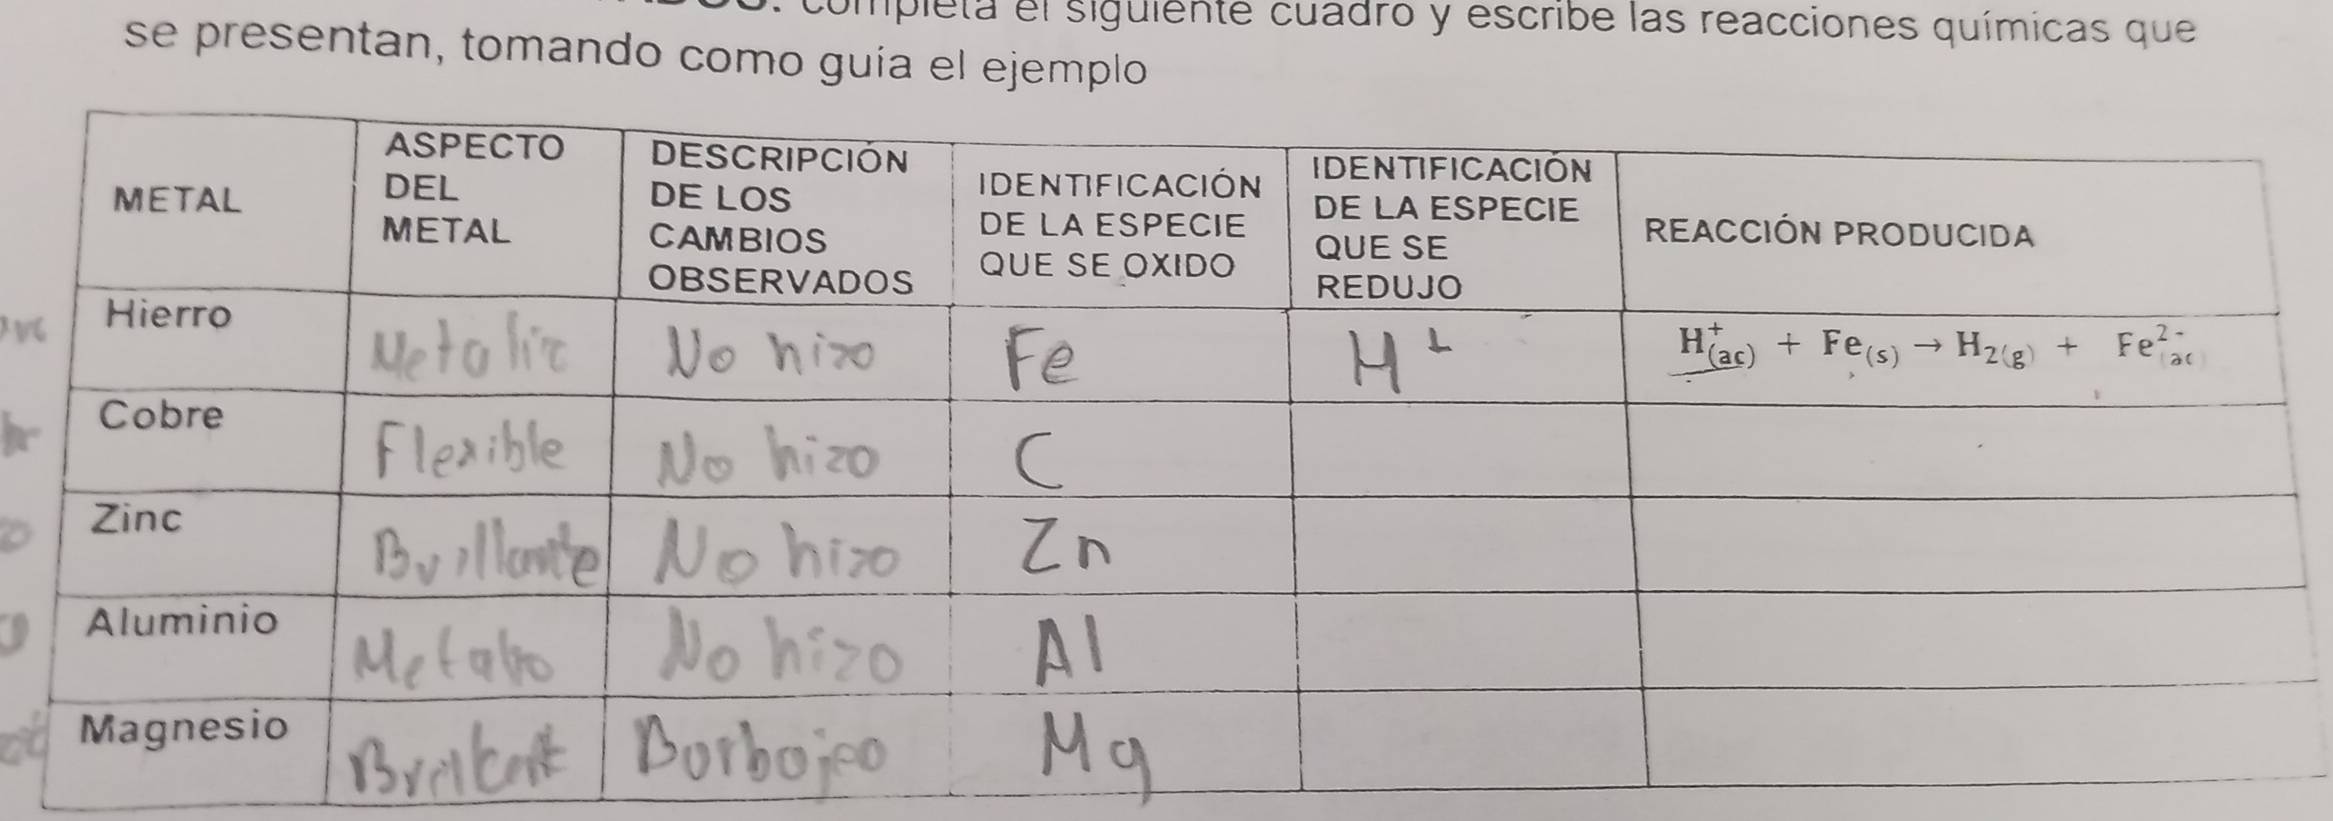 completa el siguiente cuadro y escribe las reacciones químicas que
se presentan, tomando como guía el ejemplo
METAL
ASPECTO
DEL
METAL
DESCRIPCIÓN
DE LOS
CAMBIOS
OBSERVADOS
IDENTIFICACIÓN
DE LA ESPECIE
QUE SE OXIDO
IDENTIFICACIÓN
DE LA ESPECIE
QUE SE
REDUJO
REACCIÓN PRODUCIDA
Hierro
Metalic
No hizo
Fe
H+
H⁺(ac) + Fe(s) → H₂(g) + Fe²⁻(ac)
Cobre
Flexible
No hizo
C
Zinc
Brillante
No hizo
Zn
Aluminio
No hizo
Al
Magnesio
Borbojeo
Mg